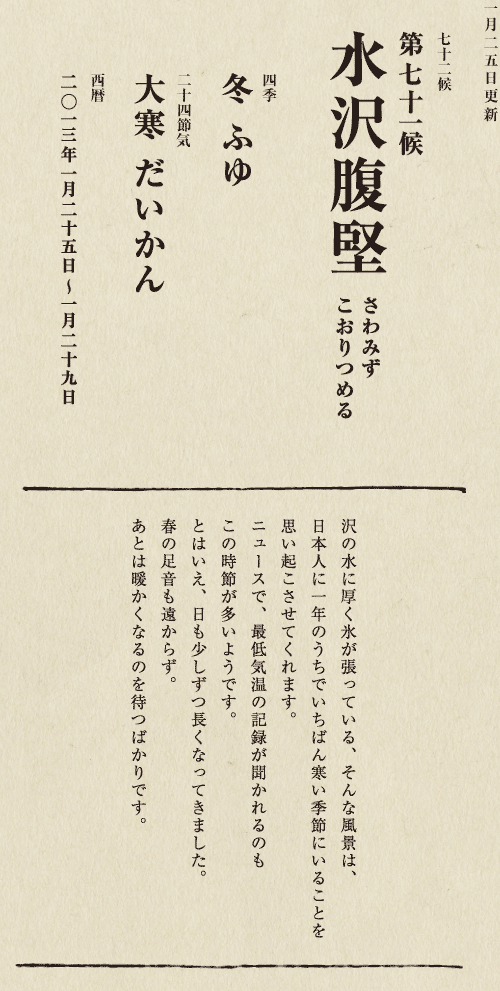 一月二五日更新
七十二候
第七十一候
水沢腹堅
さわみず
こおりつめる
四季
冬 ふゆ
二十四節気
大寒 だいかん
西暦
二〇一三年一月二十五日〜一月二十九日
沢の水に厚く氷が張っている、そんな風景は、
日本人に一年のうちでいちばん寒い季節にいることを
思い起こさせてくれます。
ニュースで、最低気温の記録が聞かれるのも
この時節が多いようです。
とはいえ、日も少しずつ長くなってきました。
春の足音も遠からず。
あとは暖かくなるのを待つばかりです。